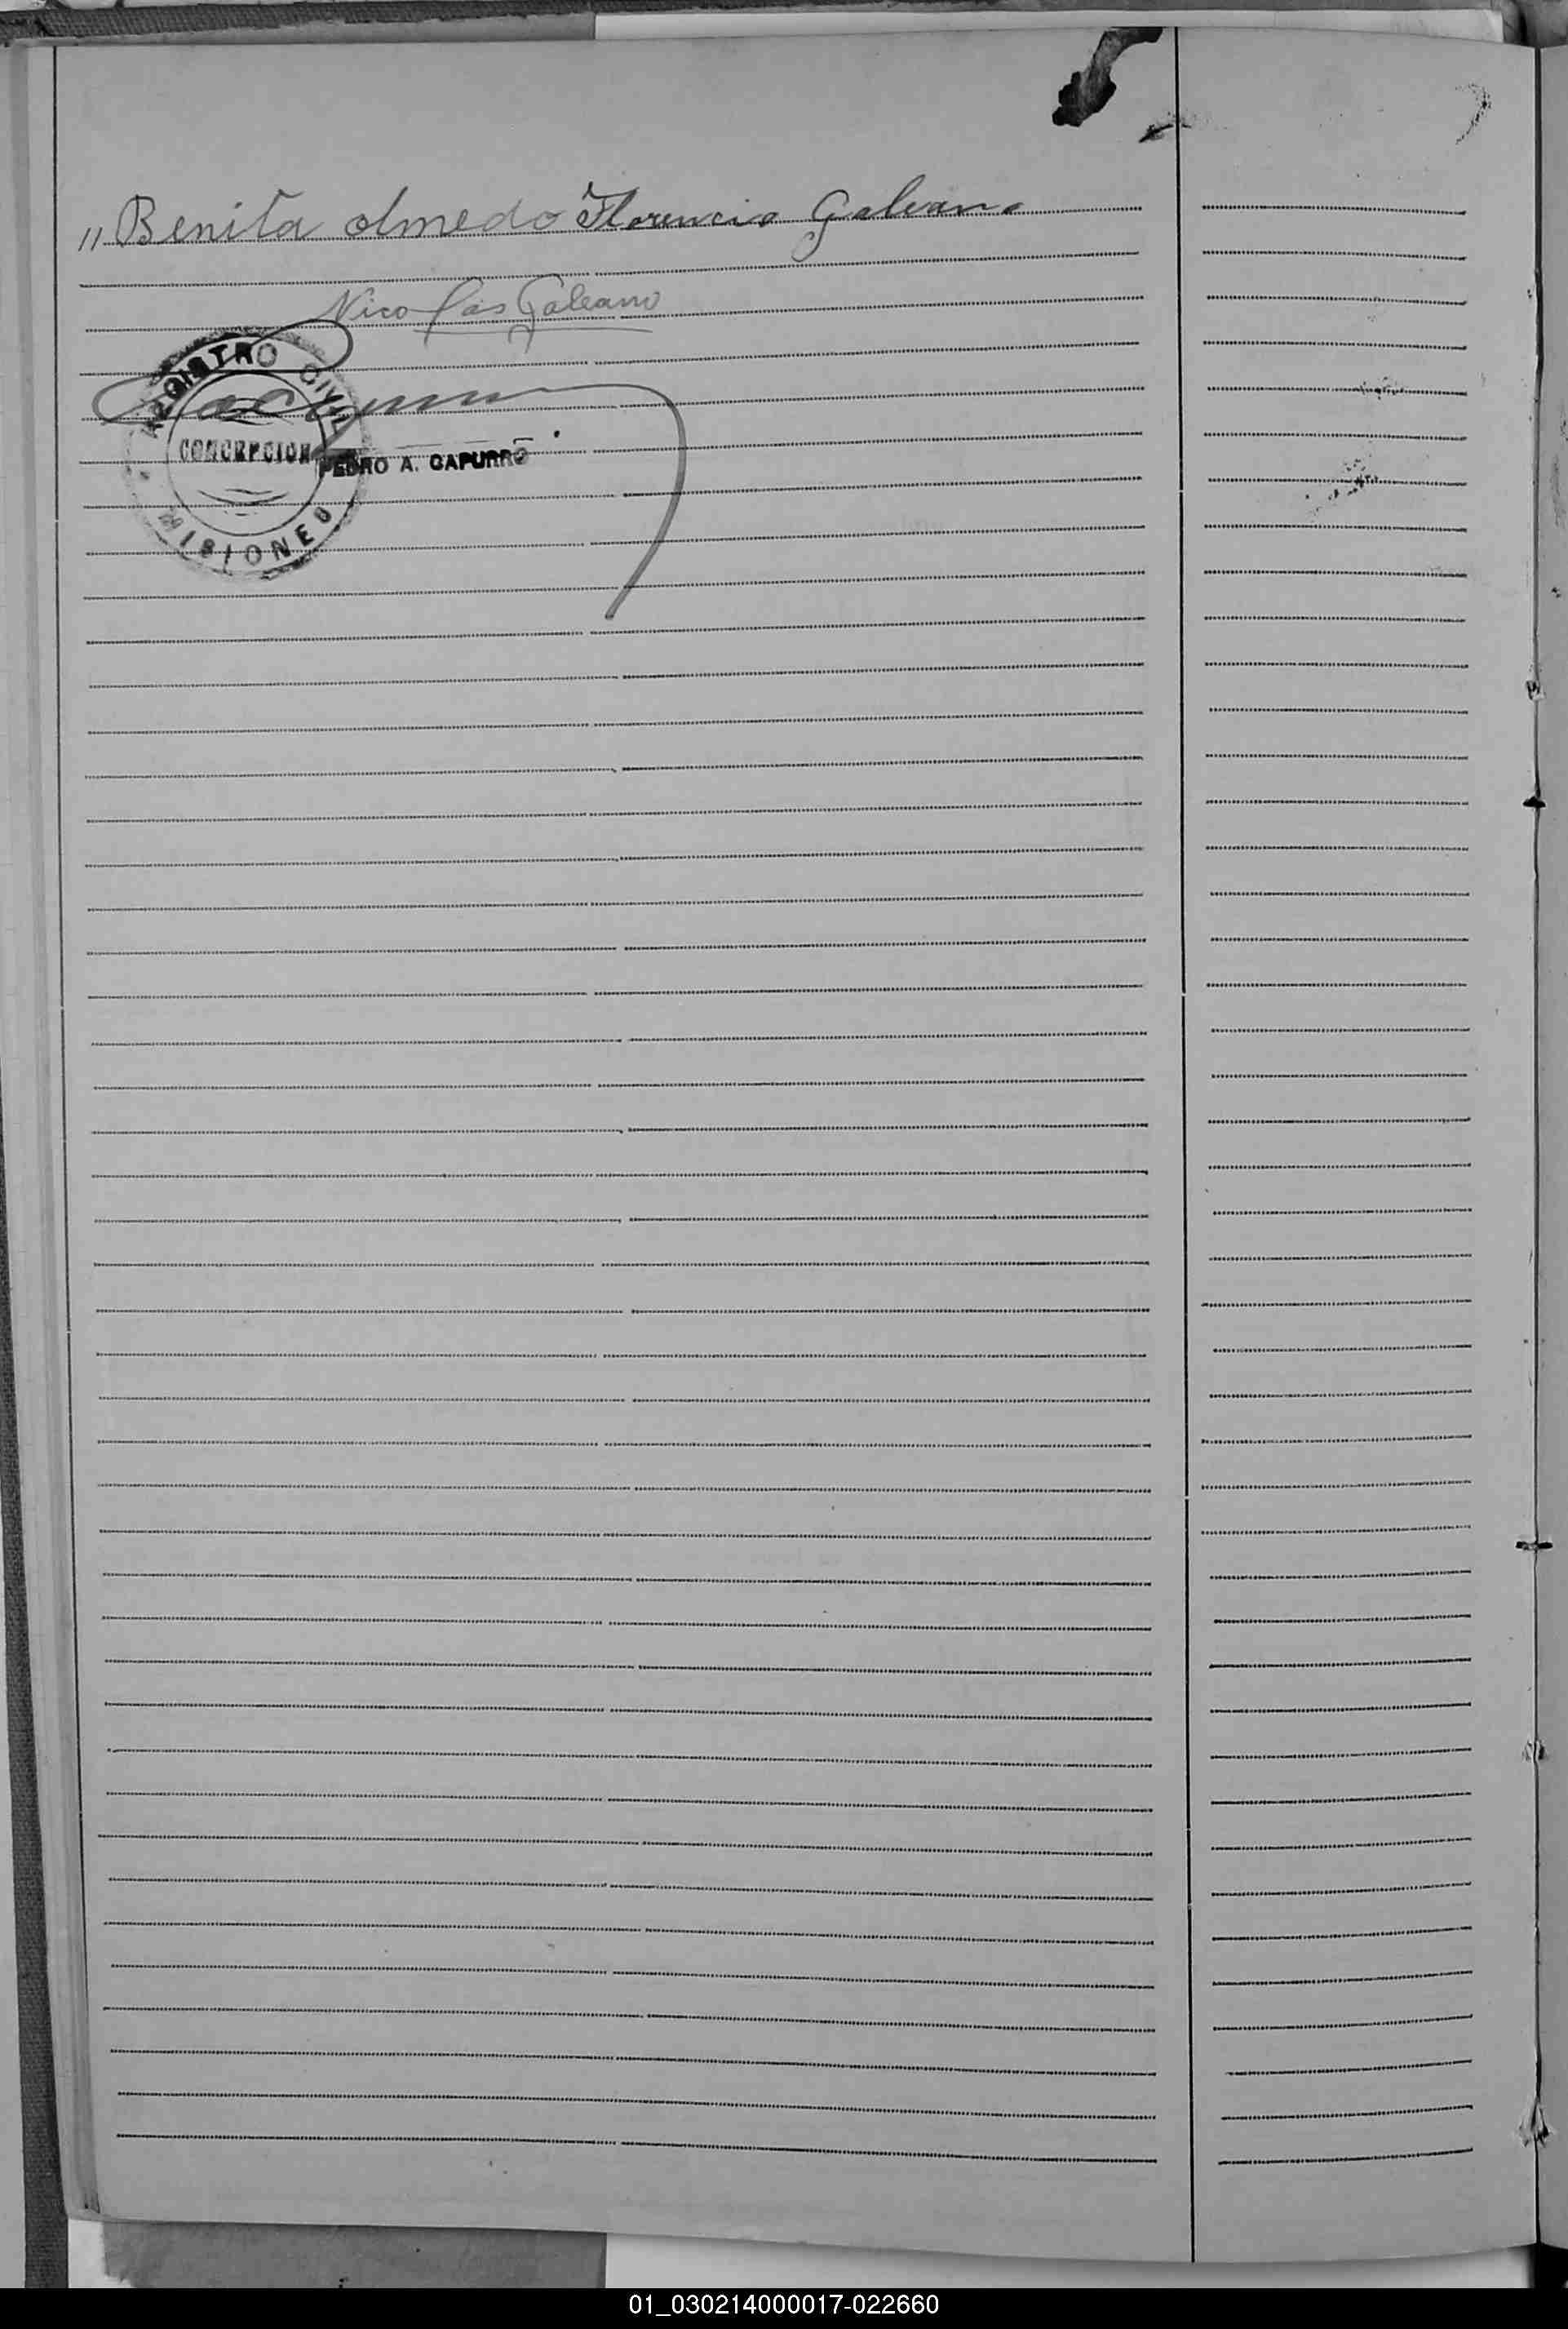 " Benita olmedo Florencio Galeano
Nicolas Galeano
REGISTRO CIVIL
CONCEPCION
PEDRO A. CAPURRO
MISIONES
01_030214000017-022660